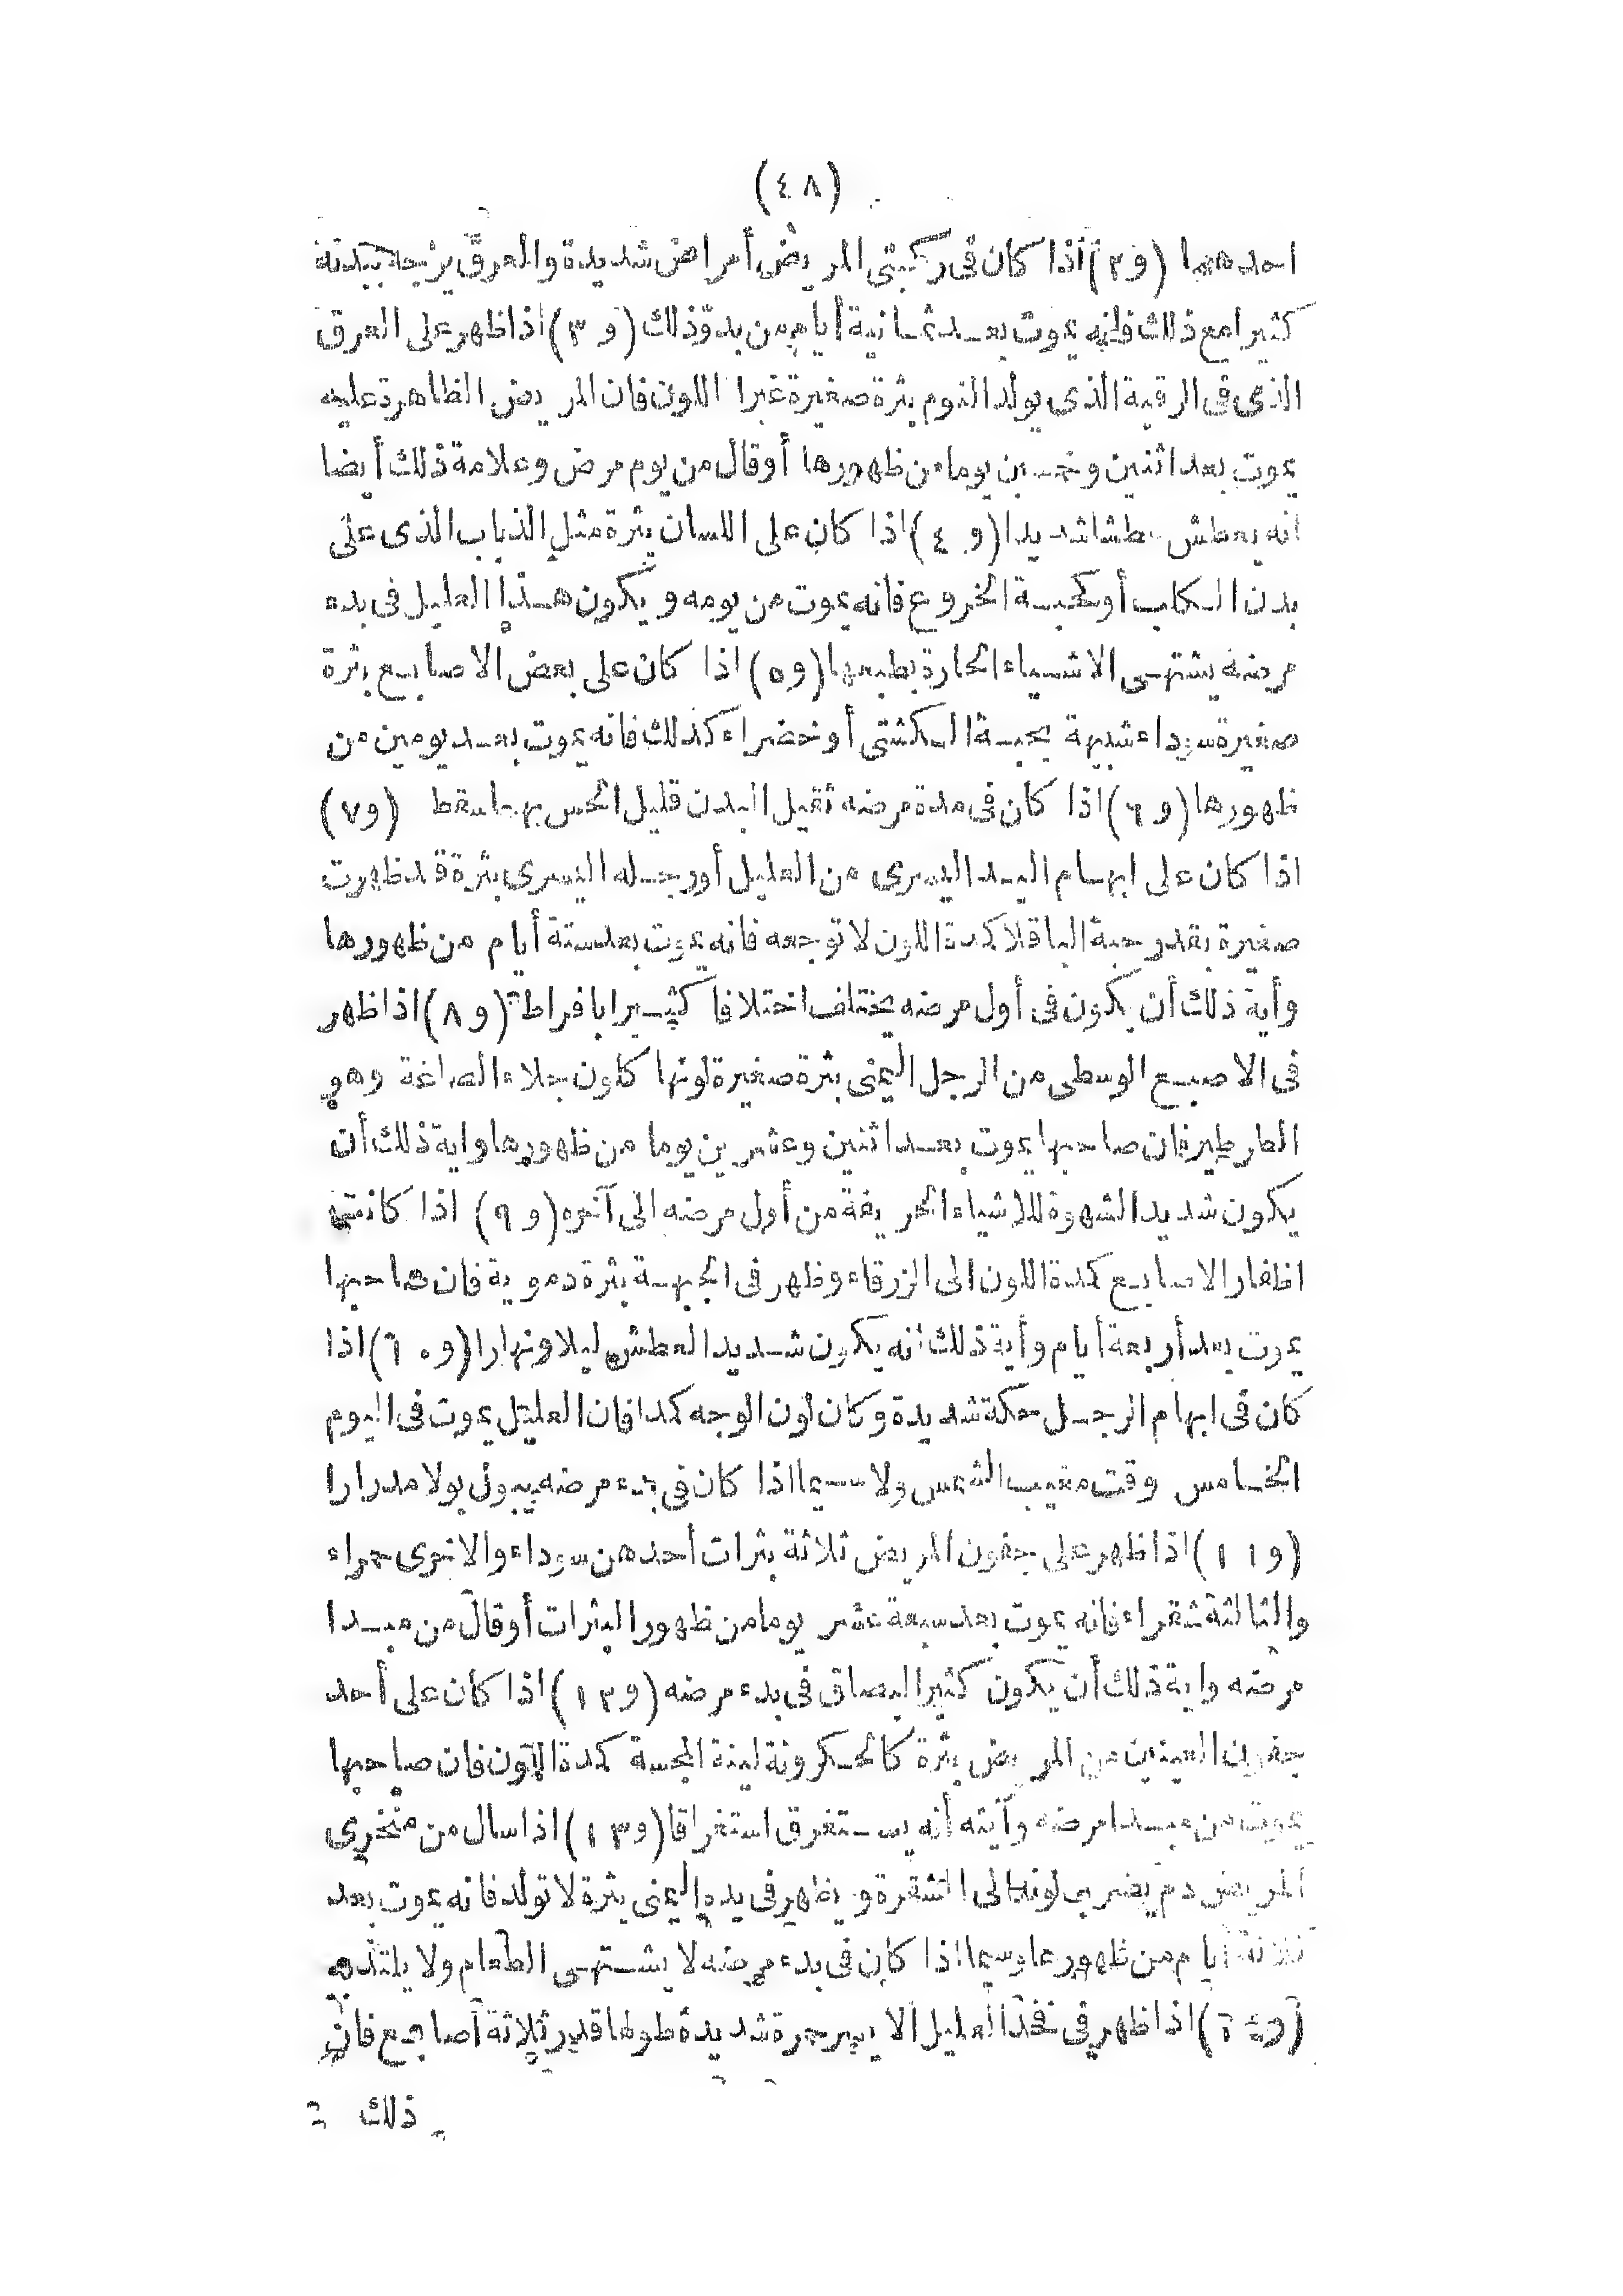 (٤٨)
احدهما (و٢) اذا كان فى ركبتى المريض أمراض شديدة والعرق يزعجه بيدنه
كثيرا مع ذلك فانه يموت بعد ثمانية أيام من بدوّ ذلك (و٣) اذا ظهر على العرق
الذى فى الرقبة الذى يولد النوم بثرة صغيرة غبرا اللون فان المريض الظاهرة عليه
يموت بعد اثنين وخمسين يوما من ظهورها أو قال من يوم مرض وعلامة ذلك أيضا
انه يعطش عطشا شديدا (و٤) اذا كان على اللسان بثرة مثل الذباب الذى على
بدن الكلب أو كحبة الخروع فانه يموت من يومه ويكون هذا العليل فى بدء
مرضه يشتهى الاشياء الحارة بطبعها (و٥) اذا كان على بعض الاصابع بثرة
صغيرة سوداء شبيهة بحبة الكشنى أو خضراء كذلك فانه يموت بعد يومين من
ظهورها (و٦) اذا كان فى مدة مرضه ثقيل البدن قليل الحس بها سقط (و٧)
اذا كان على ابهام اليد اليسرى من العليل أو رجله اليسرى بثرة قد ظهرت
صغيرة بقدر حبة الباقلا كمدة اللون لا توجعه فانه يموت بعد ستة أيام من ظهورها
وأية ذلك أن يكون فى أول مرضه يختلف اختلافا كثيرا بافراط (و٨) اذا ظهر
فى الاصبع الوسطى من الرجل اليمنى بثرة صغيرة لونها كلون جلاء الصاغة وهو
الطرطير فان صاحبها يموت بعد اثنين وعشرين يوما من ظهورها واية ذلك أن
يكون شديد الشهوة للاشياء الحريفة من أول مرضه الى آخره (و٩) اذا كانت
اظفار الاصابع كمدة اللون الى الزرقاء وظهر فى الجبهة بثرة دموية فان صاحبها
يموت بعد أربعة أيام وأية ذلك أنه يكون شديد العطش ليلا ونهارا (و١٠) اذا
كان فى ابهام الرجل حكة شديدة وكان لون الوجه كمدا فان العليل يموت فى اليوم
الخامس وقت مغيب الشمس ولا سيما اذا كان فى بدء مرضه يبول بولا مدرارا
(و١١) اذا ظهر على جفون المريض ثلاثة بثرات أحدهن سوداء والاخرى حمراء
والثالثة شقراء فانه يموت بعد سبعة عشر يوما من ظهور البثرات أو قال من مبدا
مرضه واية ذلك أن يكون كثير البصاق فى بدء مرضه (و١٢) اذا كان على أحد
جفون العينين من المريض بثرة لينة المجسة كمدة اللون فان صاحبها
يموت من مبدا مرضه وآيته أنه يستغرق استغراقا (و١٣) اذا سال من منخرى
المريض دم يضرب لونه الى الشقرة ويظهر فى يده اليمنى بثرة لا تولد فانه يموت بعد
ثلاثة أيام من ظهورها وسيما اذا كان فى بدء مرضه لا يشتهى الطعام ولا يلتذ به
(و١٤) اذا ظهر فى فخذ العليل الايسر حمرة شديدة طولها قدر ثلاثة أصابع فان
ذلك